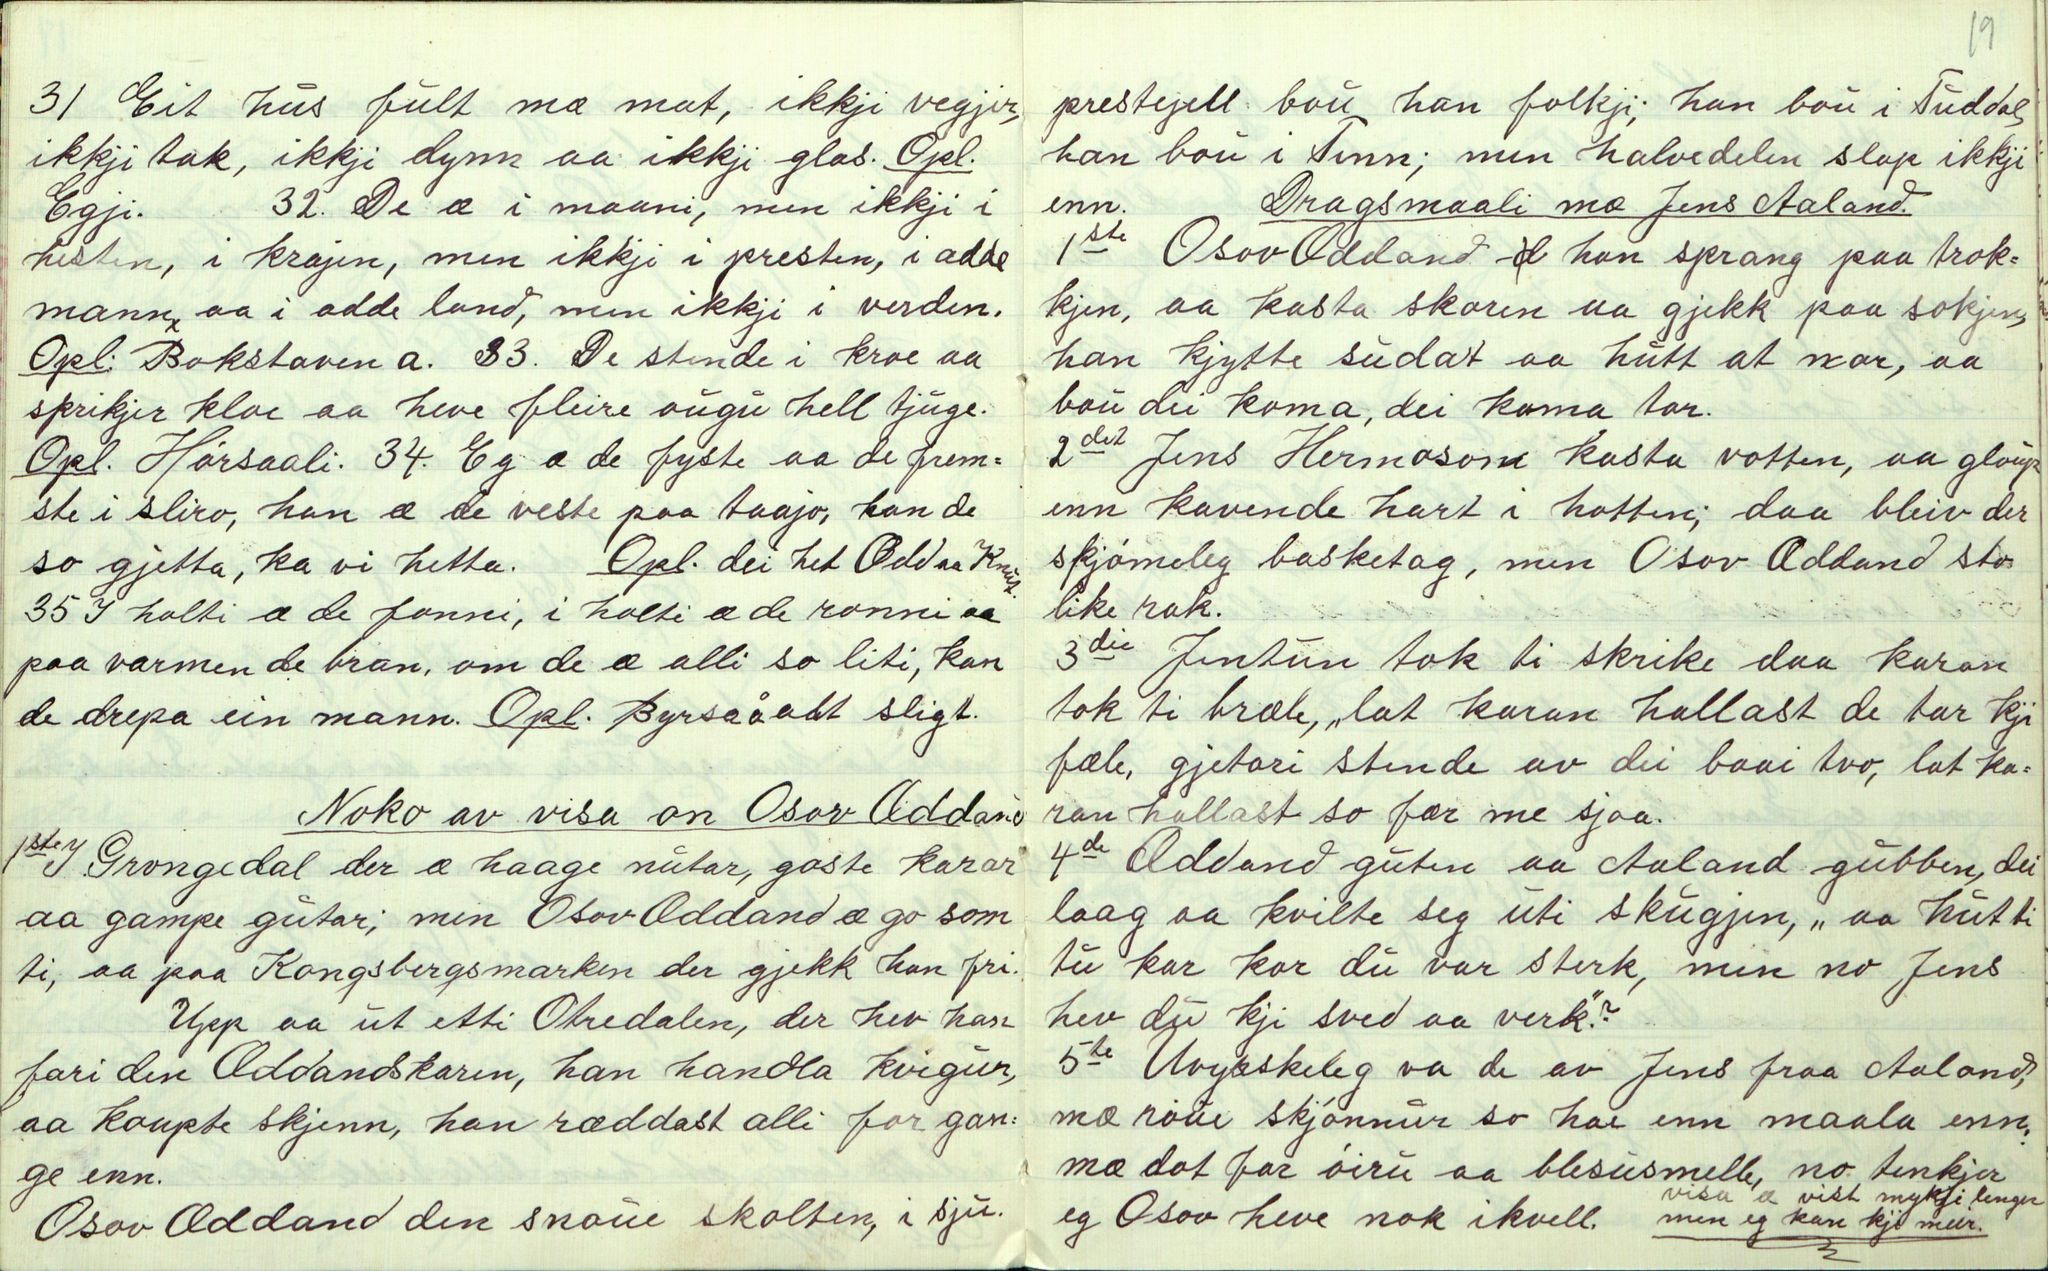 31 Eit hus fült mæ mat, ikkji vegjir,
ikkji tak, ikkji dynn aa ikkji glas. Opl.
Egji. 32. De æ i maani, men ikkji i
hesten, i krajen, men ikkji i presten, i adde
mann, aa i adde land, men ikkji i verden.
Opl: Bokstaven a. 33. De stende i kroe aa
sprikjer kloe aa heve fleire augu hell tjuge.
Opl. Hårsaali. 34. Eg æ de fyste aa de frem=
ste i sliro, han æ de veste paa taajo, kan de
so gjetta, ka vi hetta. Opl. dei het Odd aa Knut.
35 I holti æ de fonni, i holti æ de ronni aa
paa varmen de bran, om de æ alli so liti, kan
de drepa ein mann. Opl. Byrsaå aldt sligt.
Noko av visa on Osov Æddand
1ste I Grongedal der æ haage nutar, goste karar
aa gampe gutar; men Osov Oddand æ go som
ti, aa paa Kongsbergsmarken der gjekk han fri.
Upp aa ut etti Otredalen, der hev han
fari den Æddandskaren, han handla kvigur,
aa koupte skjenn, han ræddast alli for gan=
ge enn.
Osov Æddand den snoue skolten, i sju.
19
prestejell bou han folkji; han bou i Tuddal,
han bou i Tinn; men halvedelen slap ikkji
enn. Dragsmaali mæ Jens Aaland.
1ste Osov Oddand han sprang paa trok=
kjen, aa kasta skoren aa gjekk paa sokjen,
han kjytte sudat aa hutt at nor, aa
bou dei koma, dei koma tor.
2det Jens Hermoson kasta votten, aa gloup
enn kavende hart i hotten; daa bleiv der
skjømeleg basketag, men Osov Æddand sto
like rak.
3die Jentun tok ti skrike daa karan
tok ti bræle, „lat karan hallast de tar kji
fæle, gjetori stende av dei baai tvo, lat ka=
ran hallast so fær me sjaa.
4de Oddand guten aa Aaland gubben, dei
laag aa kvilte seg uti skugjen, „aa hutti
tu kar kor du var sterk, men no Jens
hev du kji sved aa verk"?
5te Uvyrskeleg va de av Jens fraa Aaland,
mæ roue skjønnur so hae enn maala enn,
mæ dat for øiru aa blesusmelle, no tenkjer
eg Osov heve nok ikvell. visa æ vist mykji lenger
men eg kan kji meir.